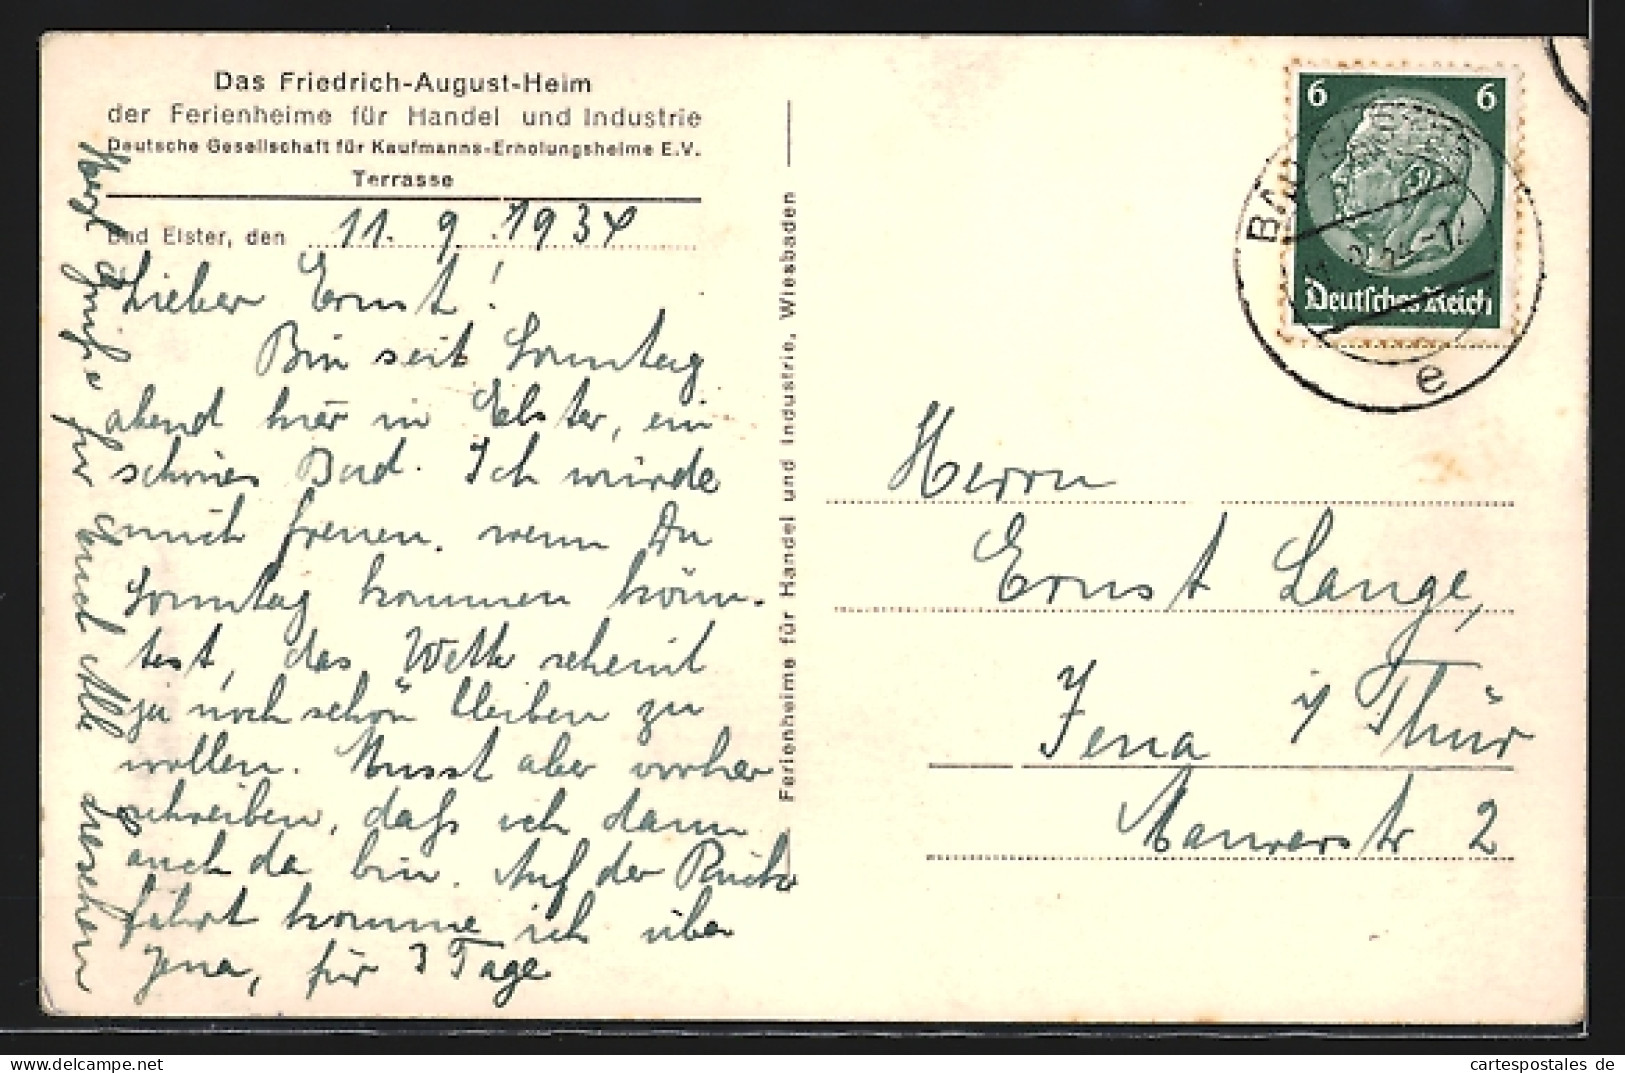 Das Friedrich-August-Heim
der Ferienheime für Handel und Industrie
Deutsche Gesellschaft für Kaufmanns-Erholungsheime E.V.
Terrasse
Bad Elster, den 11. 9. 1934
Lieber Ernst!
Bin seit Sonntag
abend hier in Elster, ein
schönes Bad. Ich würde
mich freuen, wenn Du
Sonntag kommen könn-
test, das Wetter scheint
ja noch schön bleiben zu
wollen. Musst aber vorher
schreiben, daß ich dann
auch da bin. Auf der Rück
fahrt komme ich über
Jena, für 3 Tage
Herzl Grüße für Euch Alle
Ferienheime für Handel und Industrie, Wiesbaden
6 6
Deutsches Reich
BAD ELSTER
e
Herrn
Ernst Lange,
Jena i/ Thür
2
cartespostales de